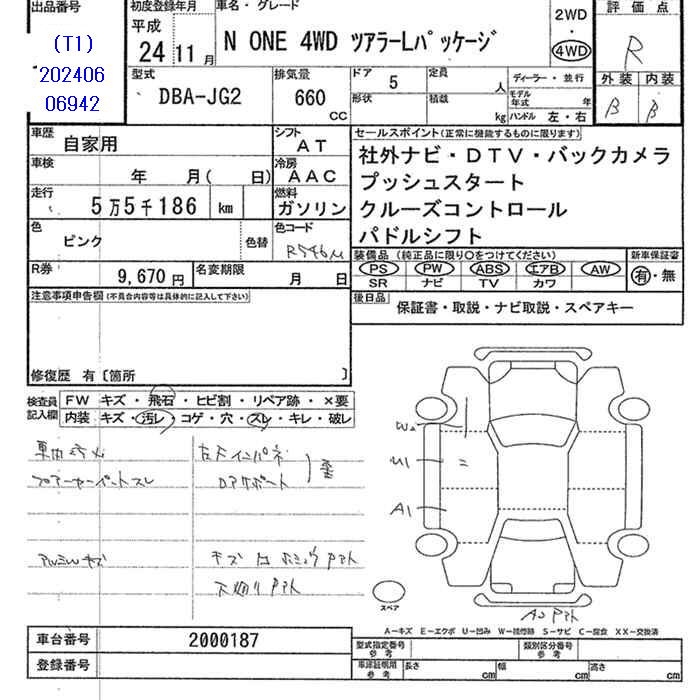 出品番号
(T1)
202406
06942
初度登録年月
平成
24 11月
車名・グレード
N ONE 4WD ツアラーLパッケージ
2WD
・
4WD
評価点
R
外装 内装
B B
型式
DBA-JG2
排気量
660
CC
ドア
5
定員
人
形状
積載
kg
ディーラー・並行
モデル年式 年
ハンドル 左・右
車歴
自家用
シフト
AT
車検
年 月( 日)
冷房
AAC
走行
5万5千186 km
燃料
ガソリン
色
ピンク
色替
色コード
R546M
R券
9,670円
名変期限
月 日
セールスポイント(正常に機能するものに限ります)
社外ナビ・DTV・バックカメラ
プッシュスタート
クルーズコントロール
パドルシフト
装備品 (純正品に限り○をつけてください)
PS PW ABS エアB AW
SR ナビ TV カワ
新車保証書
有・無
後日品
保証書・取説・ナビ取説・スペアキー
注意事項申告欄(不具合内容等は具体的に記入して下さい)
修復歴 有〔箇所 〕
検査員記入欄
FW キズ・飛石・ヒビ割・リペア跡・×要
内装 キズ・汚レ・コゲ・穴・スレ・キレ・破レ
車内汚レ
左Fインパネ
ロアサポート
歪
アルミWキズ
W2
U1
A1
スペア
A-キズ E-エクボ U-凹み W-補修跡 S-サビ C-腐食 XX-交換済
車台番号
2000187
登録番号
型式指定番号
参考
類別区分番号
参考
車庫証明用
参考
長さ cm
幅 cm
高さ cm